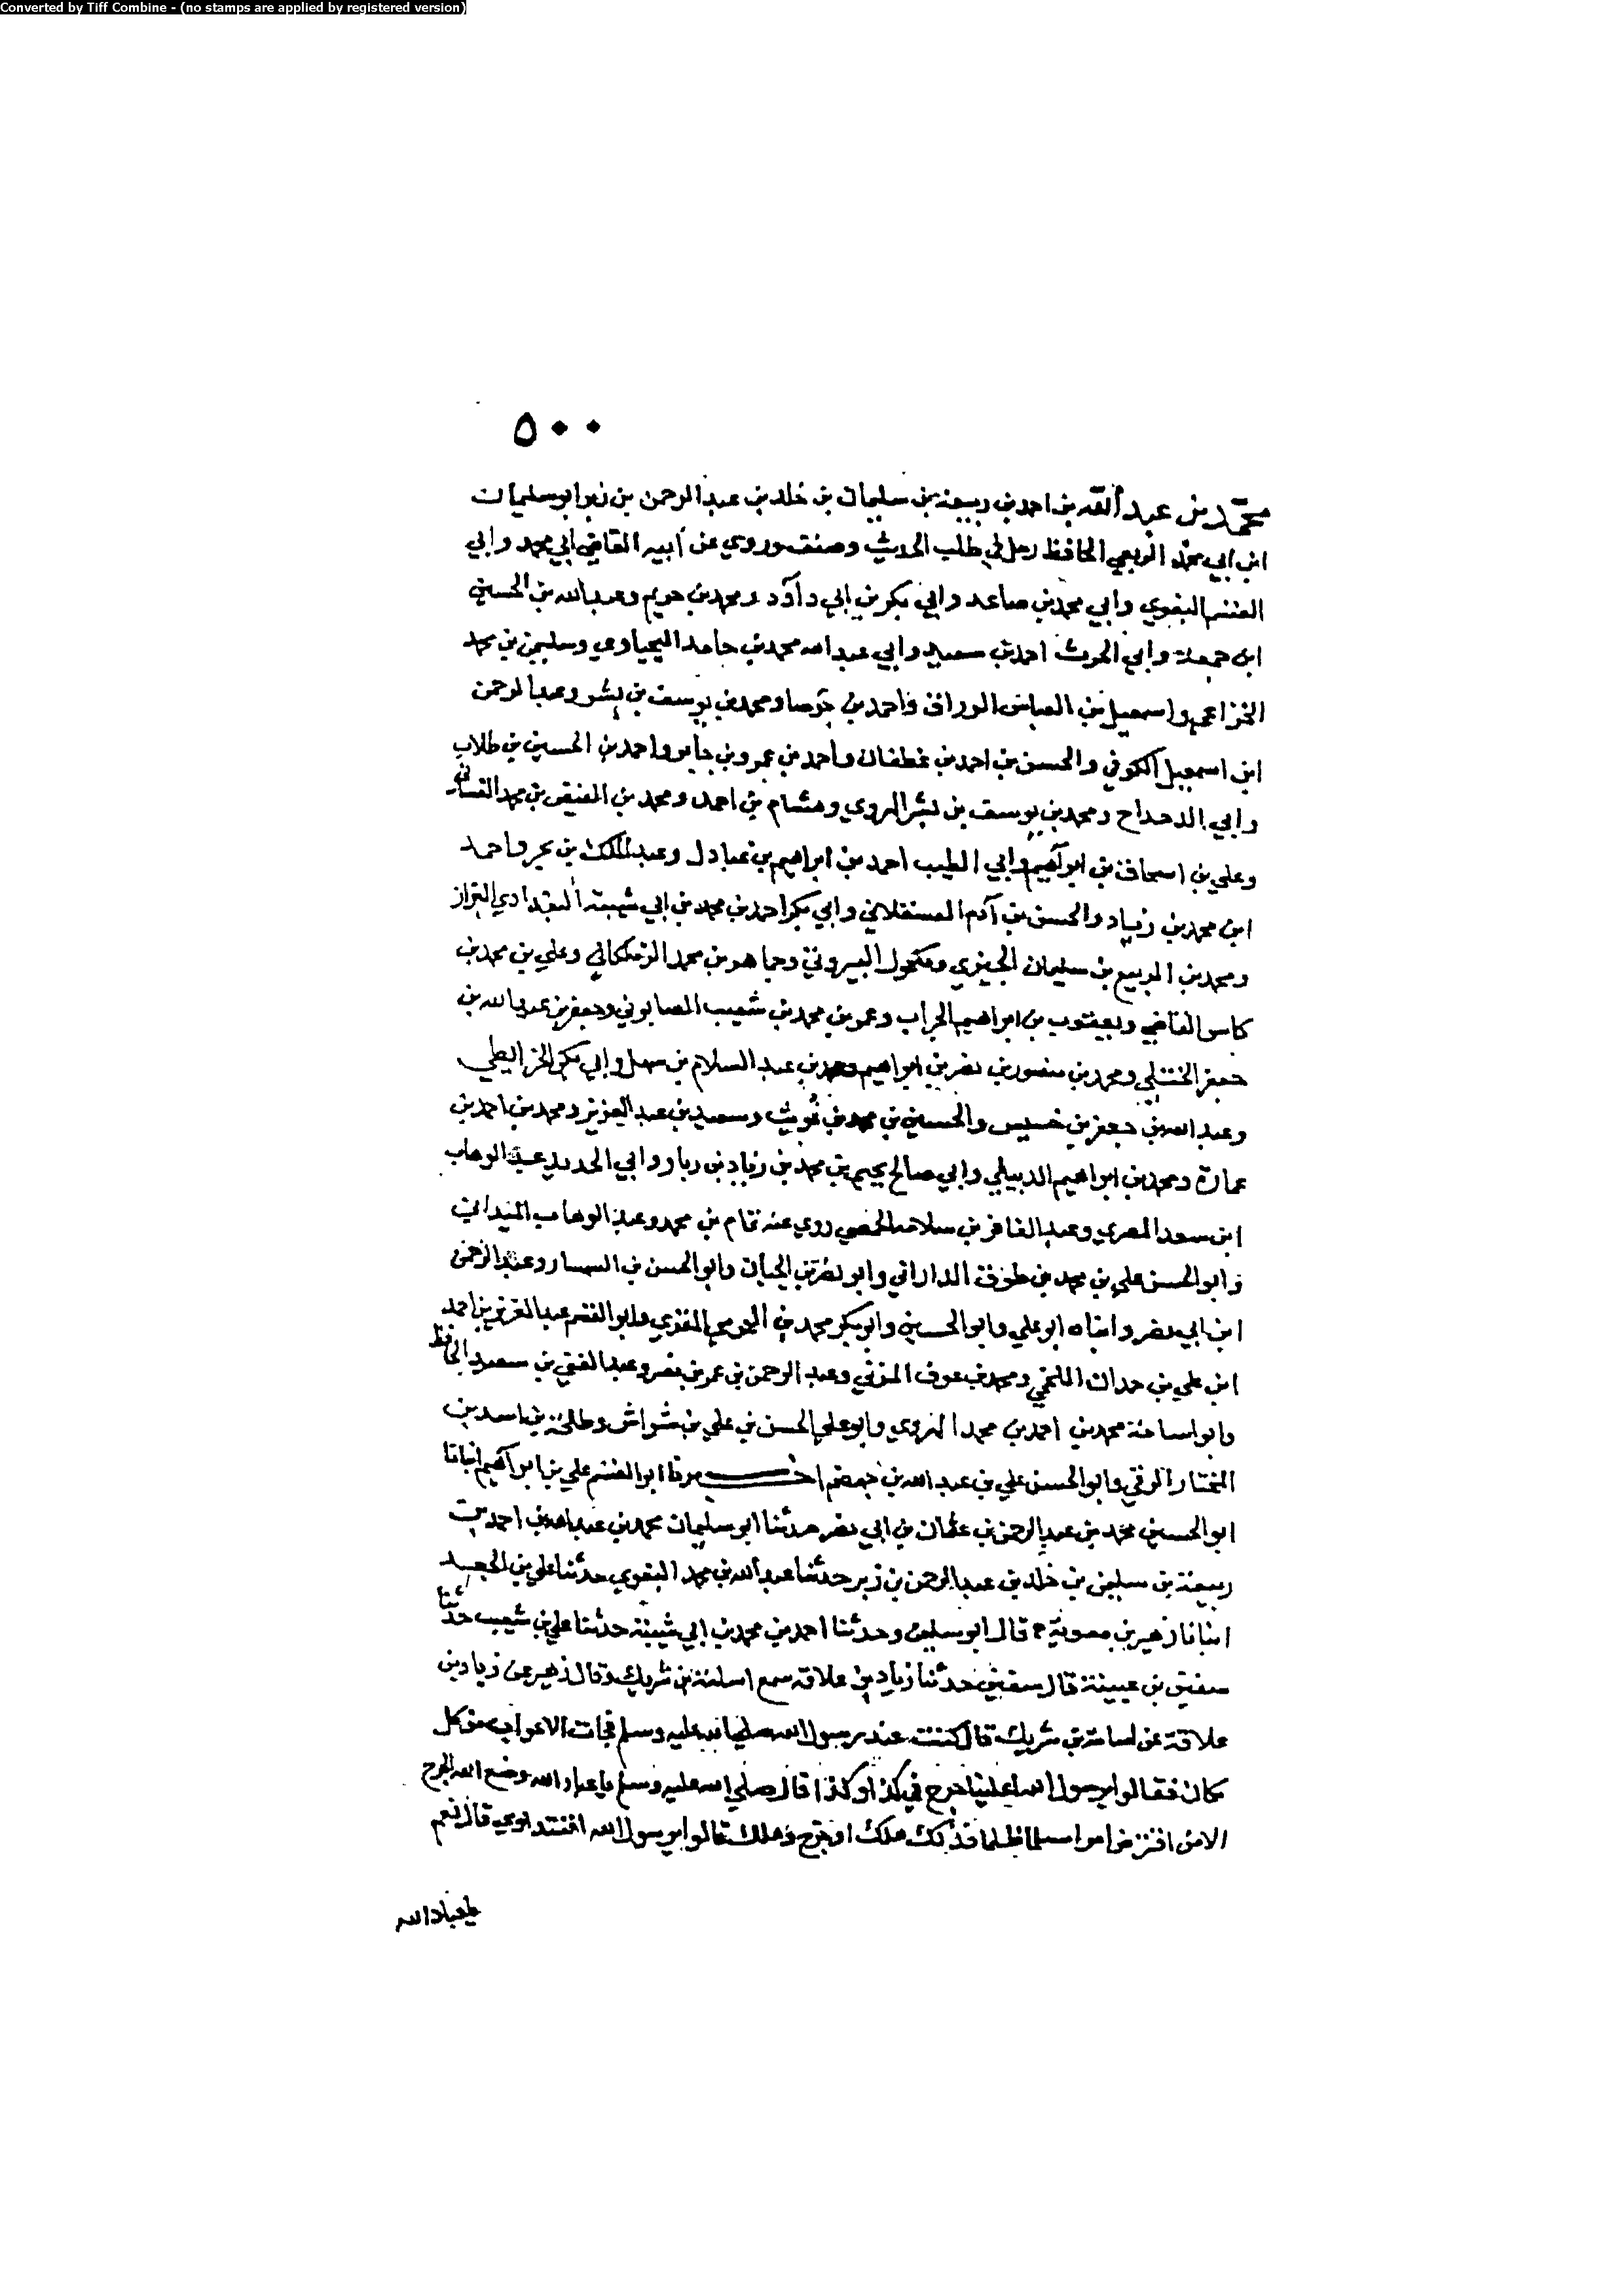 Converted by Tiff Combine - (no stamps are applied by registered version)
٥٠٠
محمد بن عبد الله بن احمد بن ربيعة بن سليمان بن خلد بن عبد الرحمن بن زبر ابو سليمان
ابن ابي محمد الربعي الحافظ رحل في طلب الحديث وصنف وروي عن أبيه القاضي ابي محمد وابي
القسم البغوي وابي محمد بن صاعد وابي بكر بن ابي داود ومحمد بن خريم وعبد الله بن الحسين
ابن جمعة وابي الحرث احمد بن سعيد وابي عبد الله محمد بن حامد اليحياوي وسليمن بن محمد
الخزاعي واسمعيل بن العباس الوراق واحمد بن جوصا ومحمد بن يوسف بن بشر وعبد الرحمن
ابن اسمعيل الكوفي والحسن بن احمد بن غطفان واحمد بن عمرو بن جابر واحمد بن الحسين بن طلاب
وابي الدحداح ومحمد بن يوسف بن بشر الهروي وهشام بن احمد ومحمد بن الفيض بن محمد الغساني
وعلي بن اسحاق بن ابراهيم وابي الطيب احمد بن ابراهيم بن عبادل وعبد الملك بن بحر واحمد
ابن محمد بن زياد والحسن بن آدم العسقلاني وابي بكر احمد بن محمد بن ابي شيبة البغدادي البزاز
ومحمد بن الربيع بن سليمان الجيزي ومكحول البيروتي وجماهر بن محمد الزملكاني وعلي بن محمد بن
كاس القاضي ويعقوب بن ابراهيم الجراب وعمر بن محمد بن شعيب الصابوني وجعفر بن عبد الله بن
جعفر الختلي ومحمد بن منصور بن نصر بن ابراهيم ومحمد بن عبد السلام بن سهل وابي بكر الخرايطي
وعبد الله بن جعفر بن خشيش والحسين بن محمد بن غويث وسعيد بن عبد العزيز ومحمد بن احمد بن
عمارة ومحمد بن ابراهيم الديبلي وابي صالح يحيى بن محمد بن زياد بن زبار وابي الحديد عبد الوهاب
ابن سعد المصري وعبد الغافر بن سلامة الحمصي روي عنه تمام بن محمد وعبد الوهاب الميداني
وابو الحسن علي بن محمد بن طوق الداراني وابو نصر بن الجبان وابو الحسن بن السمسار وعبد الرحمن
ابن ابي نصر وابناه ابو علي وابو الحسين وابو بكر محمد بن الجرمي المقري وابو القسم عبد العزيز بن احمد
ابن علي بن حمدان اللخمي ومحمد بن عوف المزني وعبد الرحمن بن عمر بن نصر وعبد الغني بن سعيد الحافظ
وابو اسامة محمد بن احمد بن محمد الهروي وابو علي الحسن بن علي بن شواش وطلحة بن اسد بن
المختار الرقي وابو الحسن علي بن عبد الله بن جهضم اخبرنا ابو القسم علي بن ابراهيم انبانا
ابو الحسين محمد بن عبد الرحمن بن عثمان بن ابي نصر حدثنا ابو سليمان محمد بن عبد الله بن احمد بن
ربيعة بن سليمن بن خلد بن عبد الرحمن بن زبر حدثنا عبد الله بن محمد البغوي حدثنا علي بن الجعد
انبانا زهير بن معوية ح قال ابو سليمن وحدثنا احمد بن محمد بن ابي شيبة حدثنا علي بن شعيب حدثنا
سفين بن عيينة قال سفين حدثنا زياد بن علاقة سمع اسامة بن شريك وقال زهير عن زياد بن
علاقة عن اسامة بن شريك قال كنت عند رسول الله صلي الله عليه وسلم فجات الاعراب من كل
مكان فقالوا يرسول الله اعلينا حرج في كذا وكذا قال صلي الله عليه وسلم يا عباد الله وضع الله الحرج
الا من اقترض امرا مسلما ظلما فذلك هلك او حرج وهلك قالوا يرسول الله افنتداوي قال نعم
يا عباد الله